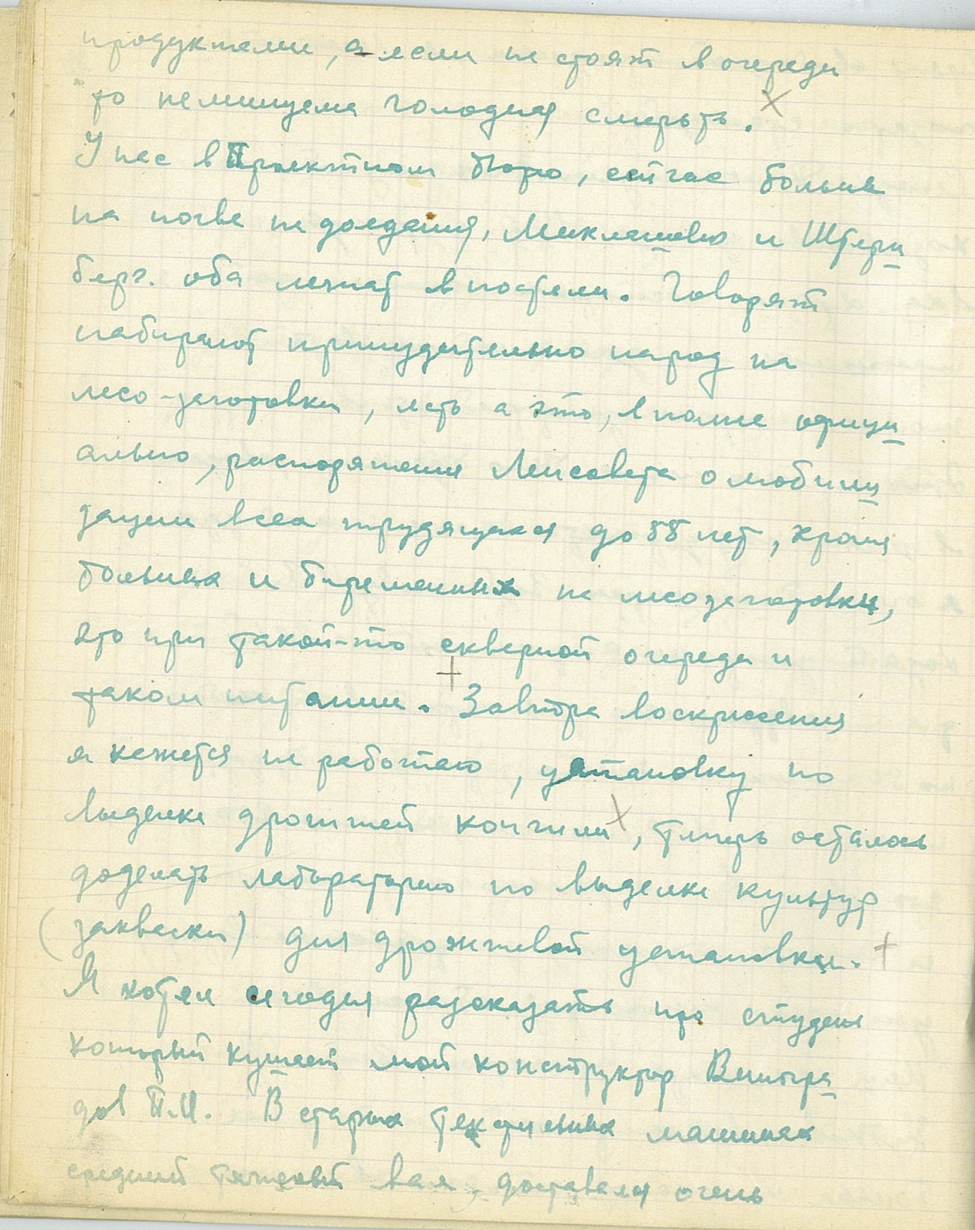 продуктами, а если не стоят в очереди
то неминуема голодная смерть.
У нас в Проектном бюро, сейчас больные
на почве не доедания, Миклашевко и Штерн
берг. оба лежат в постели. Говорят
набирают принудительно народ на
лесо-заготовки, есть а это, вполне офици
ально, распоряжение Ленсовета о мобили
зации всех трудящихся до 55 лет, кроме
больных и беременных на лесозаготовки,
это при такой-то скверной очереди и
таком питании. Завтра воскресения
я кажется не работаю, установку по
выделке дрожжей кончили, теперь осталось
доделать лабораторию по выделке культур
(закваски) для дрожжевой установки.
Я хотел сегодня рассказать про студень
который кушает мой конструктор Виногра
дов П.М. В старых текстильных машинах
средний тянущий вал, доставался очень